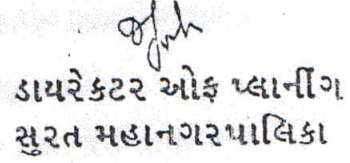 ડાયરેકટર ઓફ પ્લાનીંગ
સુરત મહાનગરપાલિકા